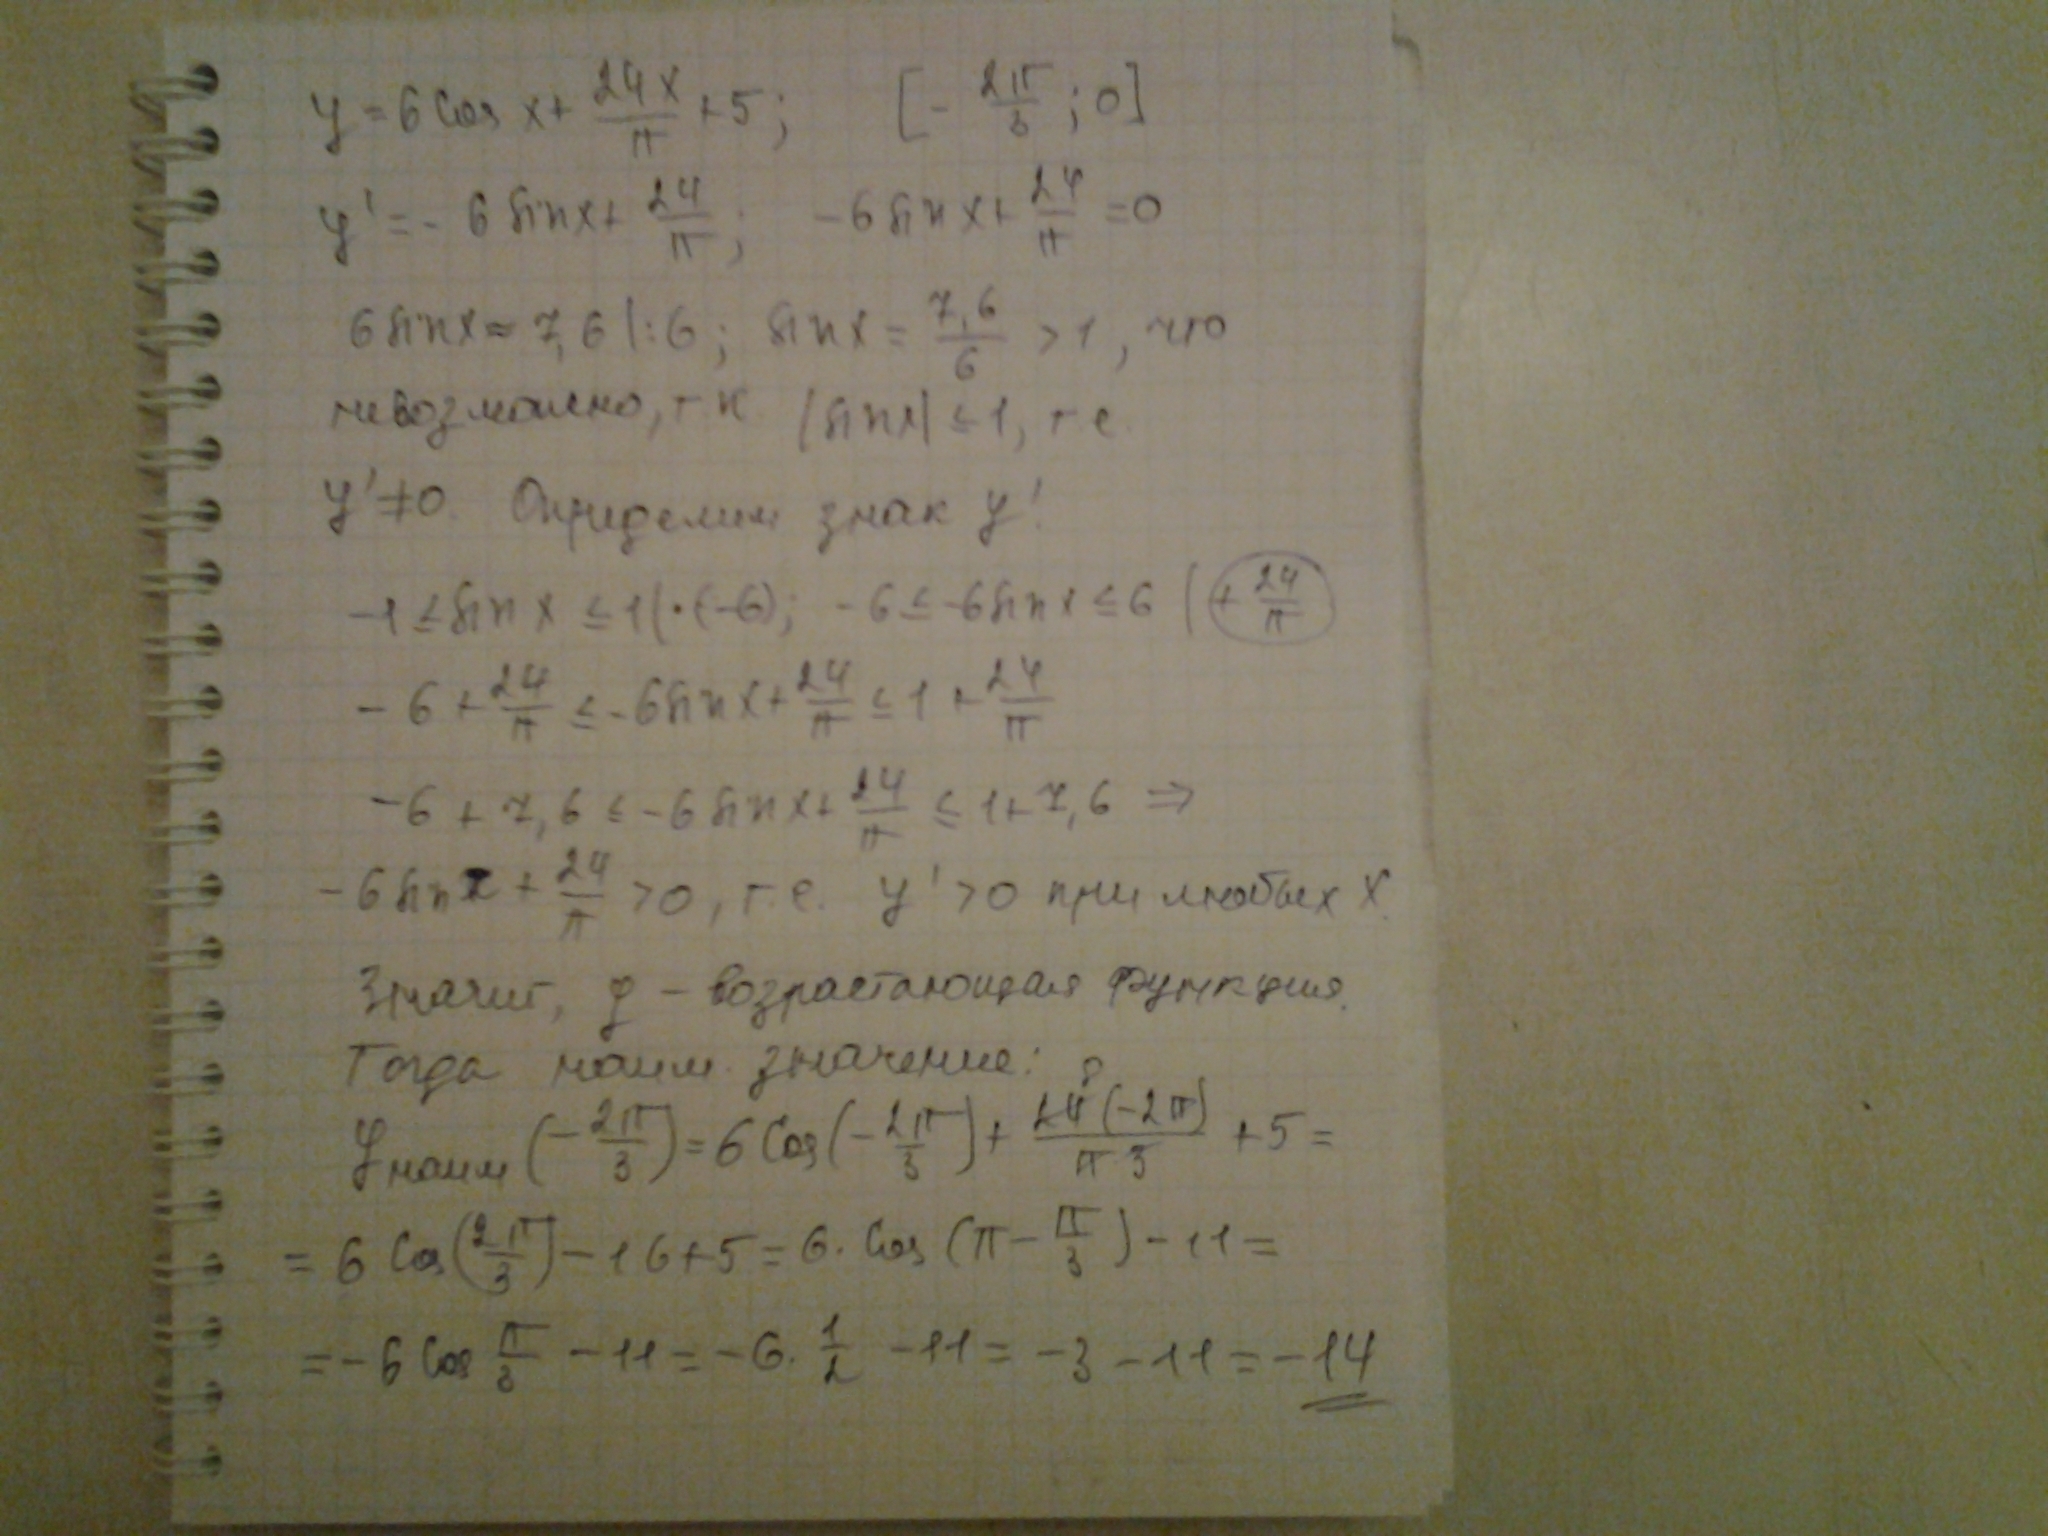 y = 6 cos x + 24x/π + 5; [- 2π/3 ; 0]
y' = - 6 sin x + 24/π; -6 sin x + 24/π = 0
6 sin x ≈ 7,6 |:6; sin x = 7,6/6 > 1, что
невозможно, т к. |sin x| ≤ 1, т е.
y' ≠ 0. Определим знак y'.
-1 ≤ sin x ≤ 1 |·(-6); -6 ≤ -6 sin x ≤ 6 | + 24/π
- 6 + 24/π ≤ -6 sin x + 24/π ≤ 1 + 24/π
-6 + 7,6 ≤ -6 sin x + 24/π ≤ 1 + 7,6 ⇒
-6 sin x + 24/π > 0, т.е. y' > 0 при любых x.
Значит, y – возрастающая функция.
Тогда наим. значение:
y наим (- 2π/3) = 6 cos(- 2π/3) + 24 8 (-2π)/π 3 + 5 =
= 6 cos(2π/3) - 16 + 5 = 6 · cos (π - π/3) - 11 =
= - 6 cos π/3 - 11 = -6 · 1/2 - 11 = -3 - 11 = -14